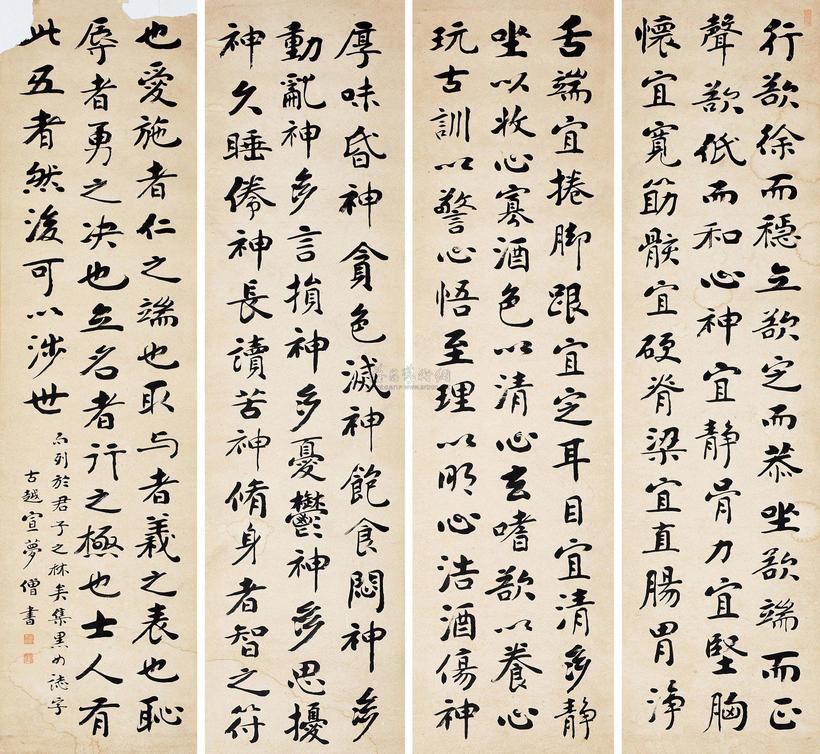 行欲徐而穩立欲定而恭坐欲端而正
聲欲低而和心神宜靜骨力宜堅胸
懷宜寬筋骸宜硬脊梁宜直腸胃淨
舌端宜捲脚跟宜定耳目宜清多靜
坐以收心寡酒色以清心去嗜欲以養心
玩古訓以警心悟至理以明心沽酒傷神
厚味昏神貪色滅神飽食悶神多
動亂神多言損神多憂鬱神多思擾
神久睡倦神長讀苦神脩身者智之符
也愛施者仁之端也取与者義之表也恥
辱者勇之决也立名者行之極也士人有
此五者然後可以涉世
而列於君子之林矣集黑女誌字
古越宣夢僧書